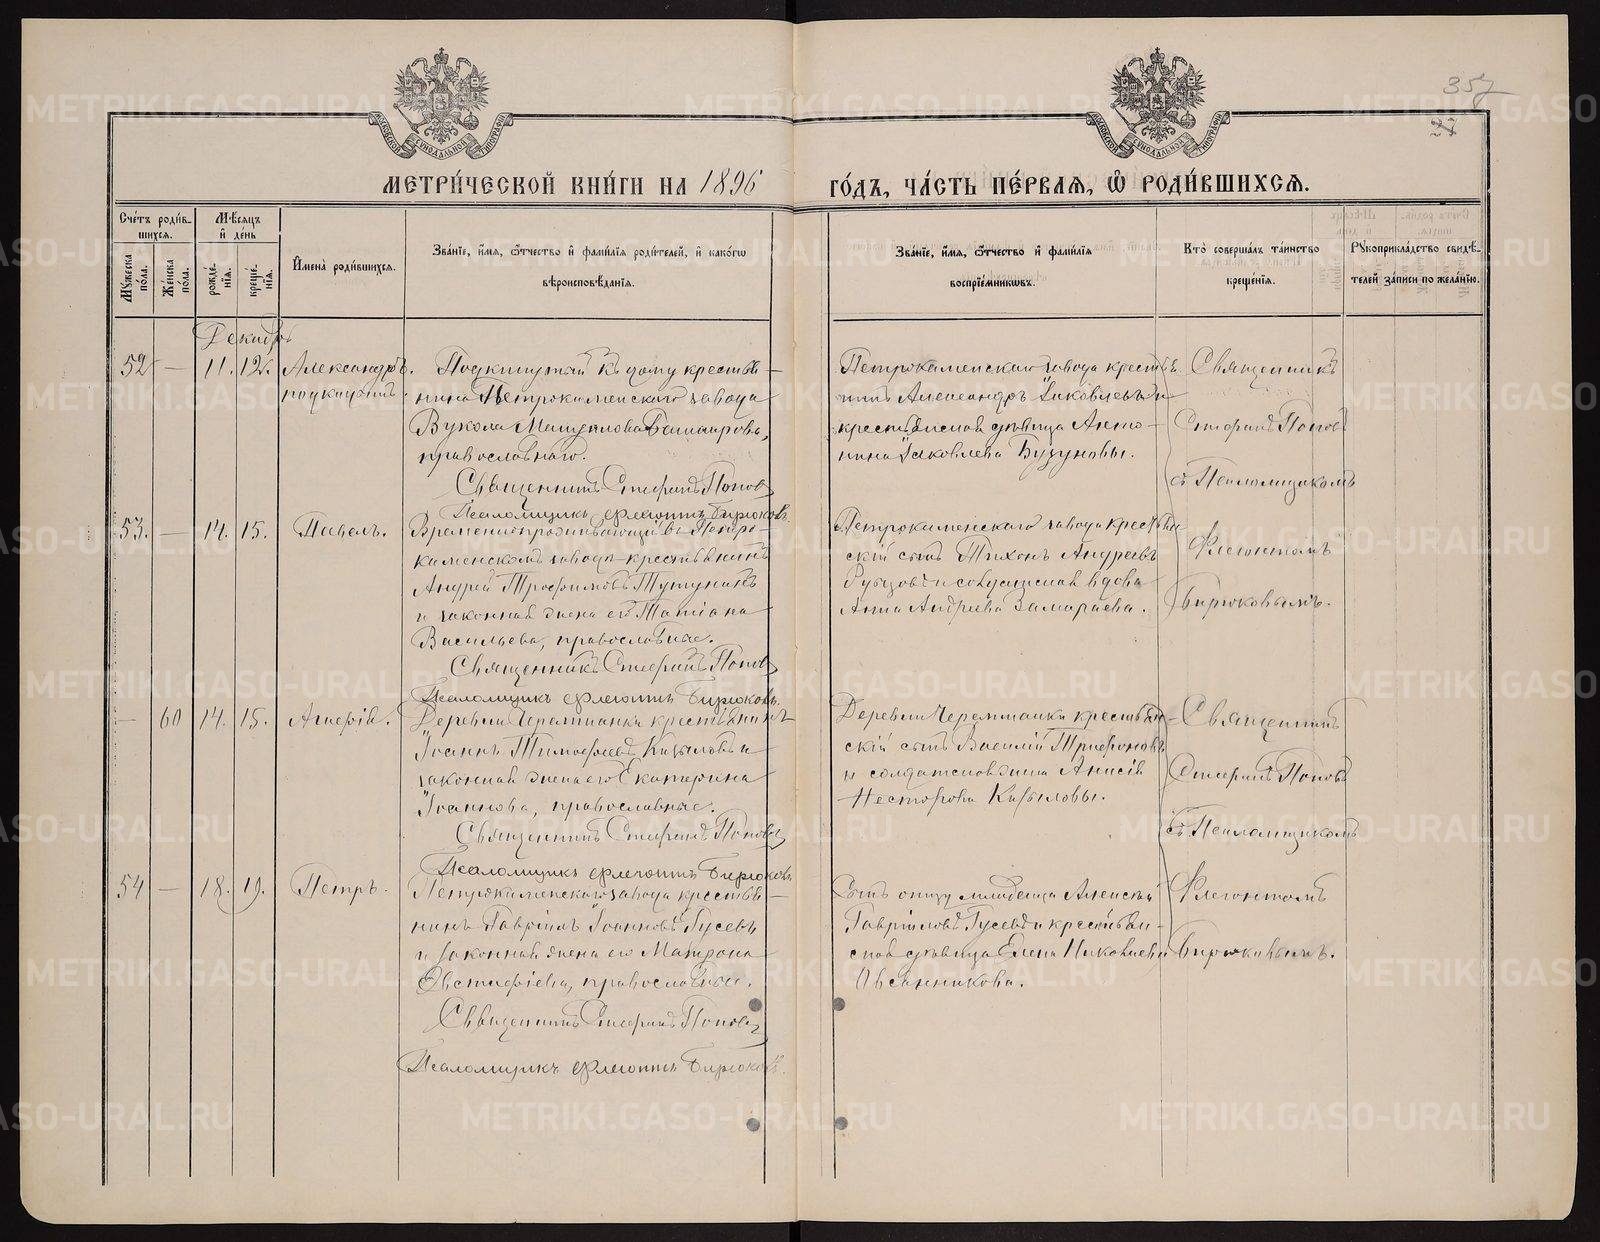 357
27
МЕТРИ́ЧЕСКОЙ КНИ́ГИ НА 1896 ГО́ДЪ, ЧА́СТЬ ПЕ́РВАѦ, Ѽ РОДИ́ВШИХСѦ.
Сче́тъ роди́вшихсѧ.
Мꙋ́жеска по́ла.
Же́нска по́ла.
Мѣ́сѧцъ и҆ де́нь
рожде́нїѧ.
креще́нїѧ.
И҆мена̀ роди́вшихсѧ.
Зва́нїе, и҆́мѧ, ѻ҆́тчество и҆ фами́лїѧ роди́телей, и҆ како́гѡ вѣроисповѣ́данїѧ.
Зва́нїе, и҆́мѧ, ѻ҆́тчество и҆ фами́лїѧ воспрїе́мникѡвъ.
Кто̀ соверша́лъ та́инство креще́нїѧ.
Рꙋкоприкла́дство свидѣ́телей за́писи по жела́нїю.
Декабрь
52 — 11. 12. Александръ.
подкидышъ.
Подкинутый къ дому крестья-
нина Петрокаменскаго завода
Вукола
православнаго.
Священникъ Стефанъ Попов
Псаломщикъ Флегонтъ Бирюковъ
Петрокаменскаго завода кресть
нинъ Александръ Iаковлевъ и
крестьянская дѣвица Анто-
нина Iаковлева Бузуновы.
Священникъ
Стефанъ Поповъ
съ Псаломщикомъ
Флегонтомъ
Бирюковымъ.
53. — 14. 15. Павелъ.
Временнопроживающій въ Петро-
каменскомъ заводѣ крестьянинъ
Андрей Трофимовъ
и законная жена его Татіана
Васильева, православные.
Священникъ Стефанъ Попов
Псаломщикъ Флегонтъ Бирюковъ
Петрокаменскаго завода крестьян
скій сынъ Тихонъ Андреевъ
Рубцовъ и солдатская вдова
Анна Андреева Замараева.
— 60 14. 15. Агнефія.
Деревни Черемшанки крестьянинъ
Iоаннъ Тимофеевъ Кизиловъ и
законная жена его Екатерина
Iоаннова, православные.
Священникъ Стефанъ Попов
Псаломщикъ Флегонтъ Бирюковъ
Деревни Черемшанки крестьян-
скій сынъ Василій Трифоновъ
и солдатская жена Анисія
Несторова Кизиловы.
Священникъ
Стефанъ Поповъ
съ Псаломщикомъ
Флегонтомъ
Бирюковымъ.
54 — 18. 19. Петръ.
Петрокаменскаго завода крестья-
нинъ Гавріилъ Iоанновъ Гусевъ
и законная жена его Матрона
Евстафіева, православные.
Священникъ Стефанъ Попов
Псаломщикъ Флегонтъ Бирюковъ.
Сынъ отцу младенца Алексѣй
Гавріиловъ Гусевъ и крестьян-
ская дѣвица Елена Николаева
Овсянникова.
METRIKI.GASO-URAL.RU